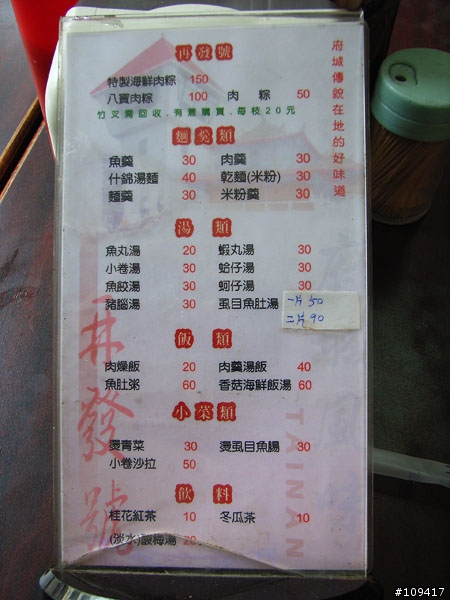 再發號
府城傳說在地的好味道
特製海鮮肉粽 150
八寶肉粽 100 肉粽 50
竹叉需回收.有意購買.每枝20元
麵羹類
魚羹 30 肉羹 30
什錦湯麵 40 乾麵(米粉) 30
麵羹 30 米粉羹 30
湯類
魚丸湯 20 蝦丸湯 30
小卷湯 30 蛤仔湯 30
魚餃湯 30 蚵仔湯 30
豬腦湯 30 虱目魚肚湯 一片50
二片90
飯類
肉燥飯 20 肉羹湯飯 40
魚肚粥 60 香菇海鮮飯湯 60
小菜類
燙青菜 30 燙虱目魚腸 30
小卷沙拉 50
飲料
桂花紅茶 10 冬瓜茶 10
(淡水)酸梅湯 20
再發號
TAINAN
#109417